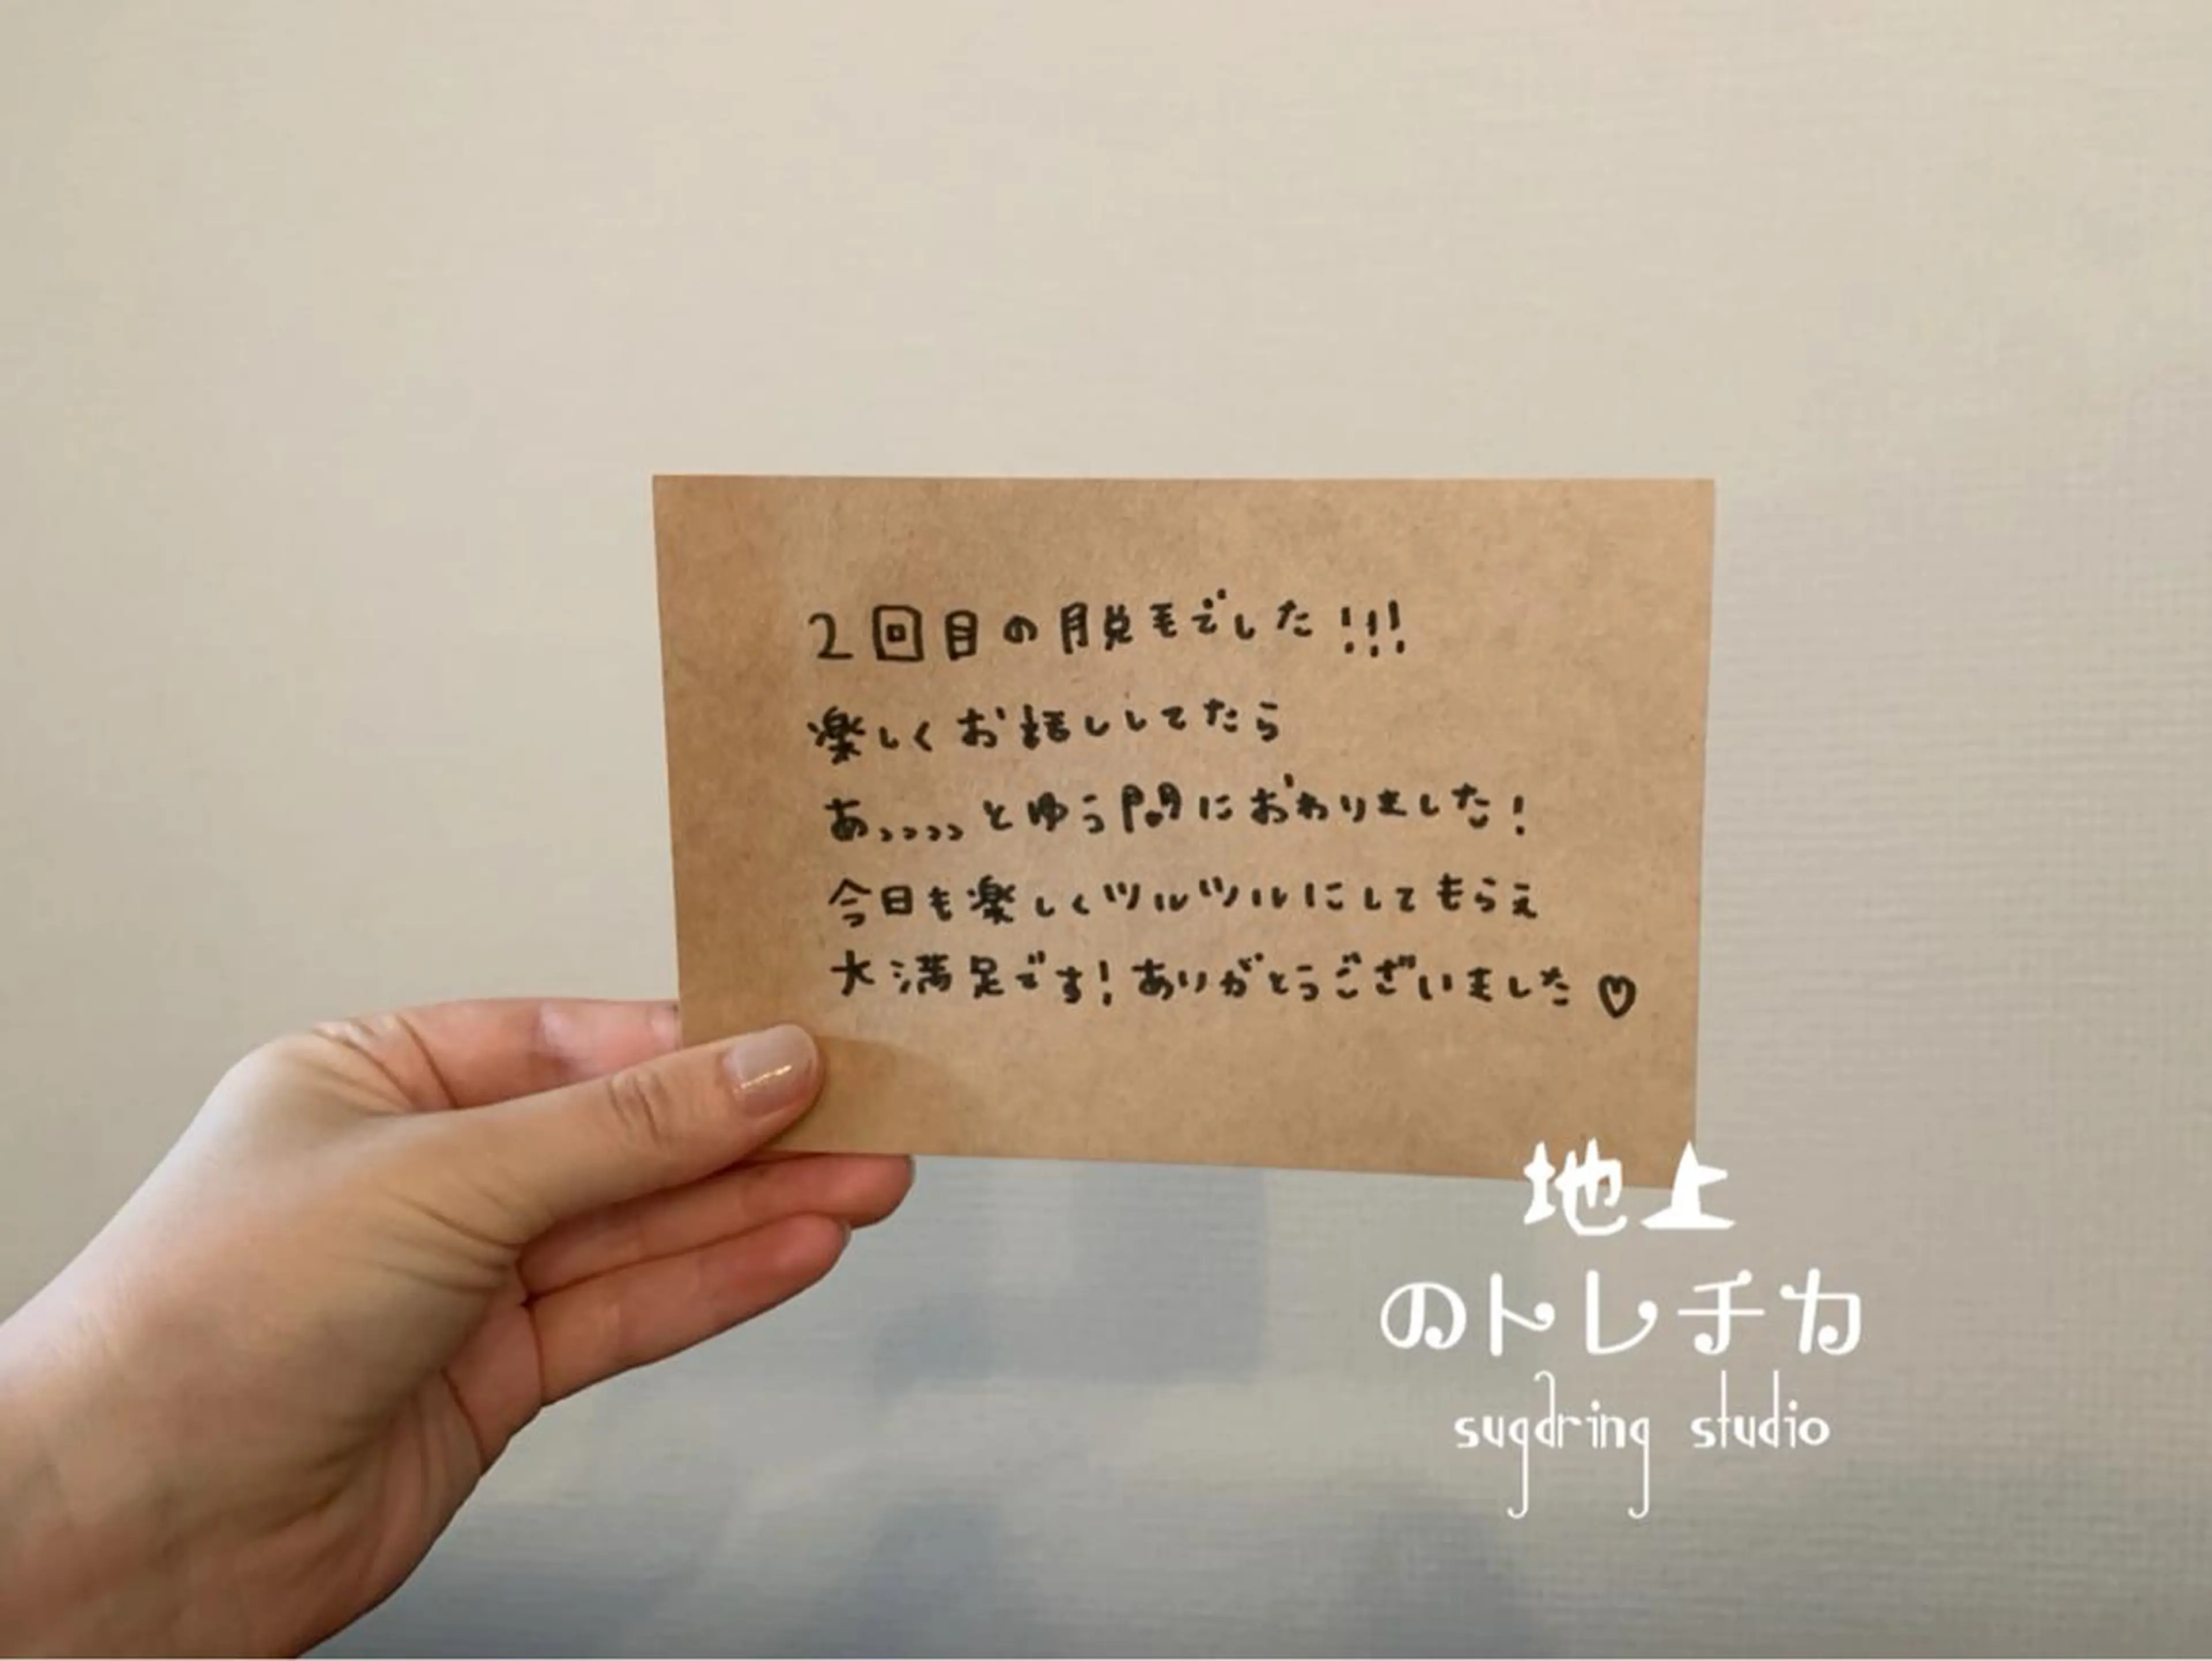 2回目の脱毛でした!!!
楽しくお話ししてたら
あ、、、、とゆう間におわりました!
今日も楽しくツルツルにしてもらえ
大満足です!ありがとうございました♡
地上
のトレチカ
sugaring studio